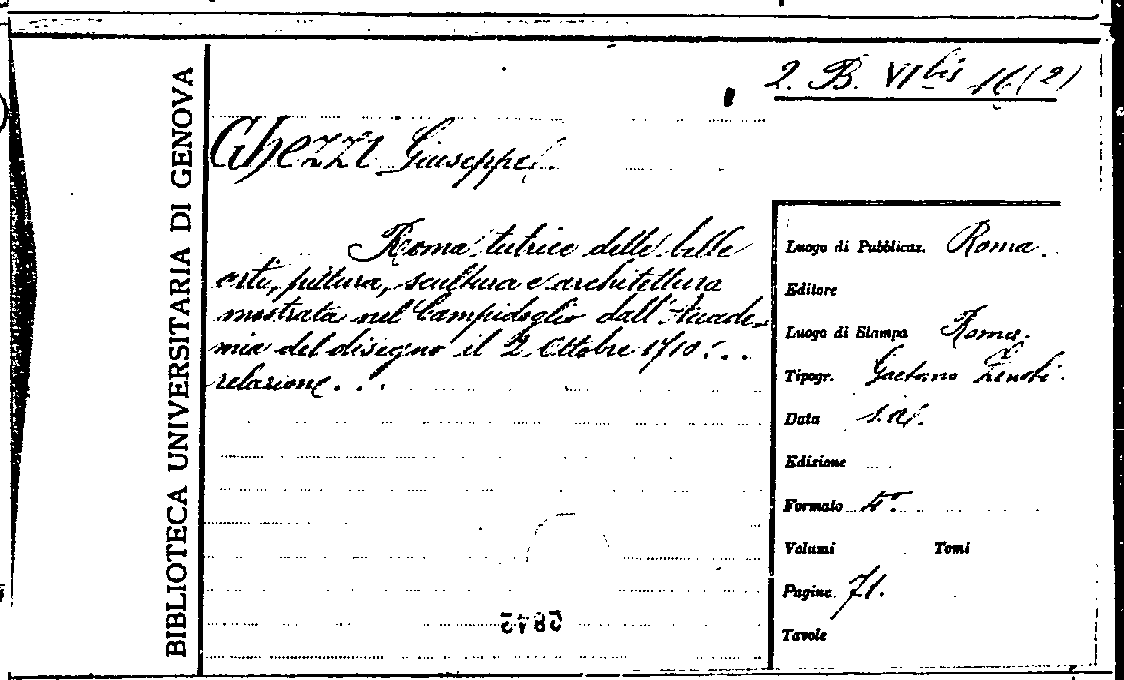 BIBLIOTECA UNIVERSITARIA DI GENOVA
2. B. VI bis 16 (2)
Ghezzi Giuseppe.
Roma tutrice delle belle
arti, pittura, scultura e architettura
mostrata nel Campidoglio dall'Accade-
mia del disegno il 2 Ottobre 1710...
relazione...
Luogo di Pubblicaz. Roma.
Editore
Luogo di Stampa Roma.
Tipogr. Gaetano Zenobi.
Data s.a.
Edizione
Formato 4º.
Volumi Tomi
Pagine 71.
Tavole